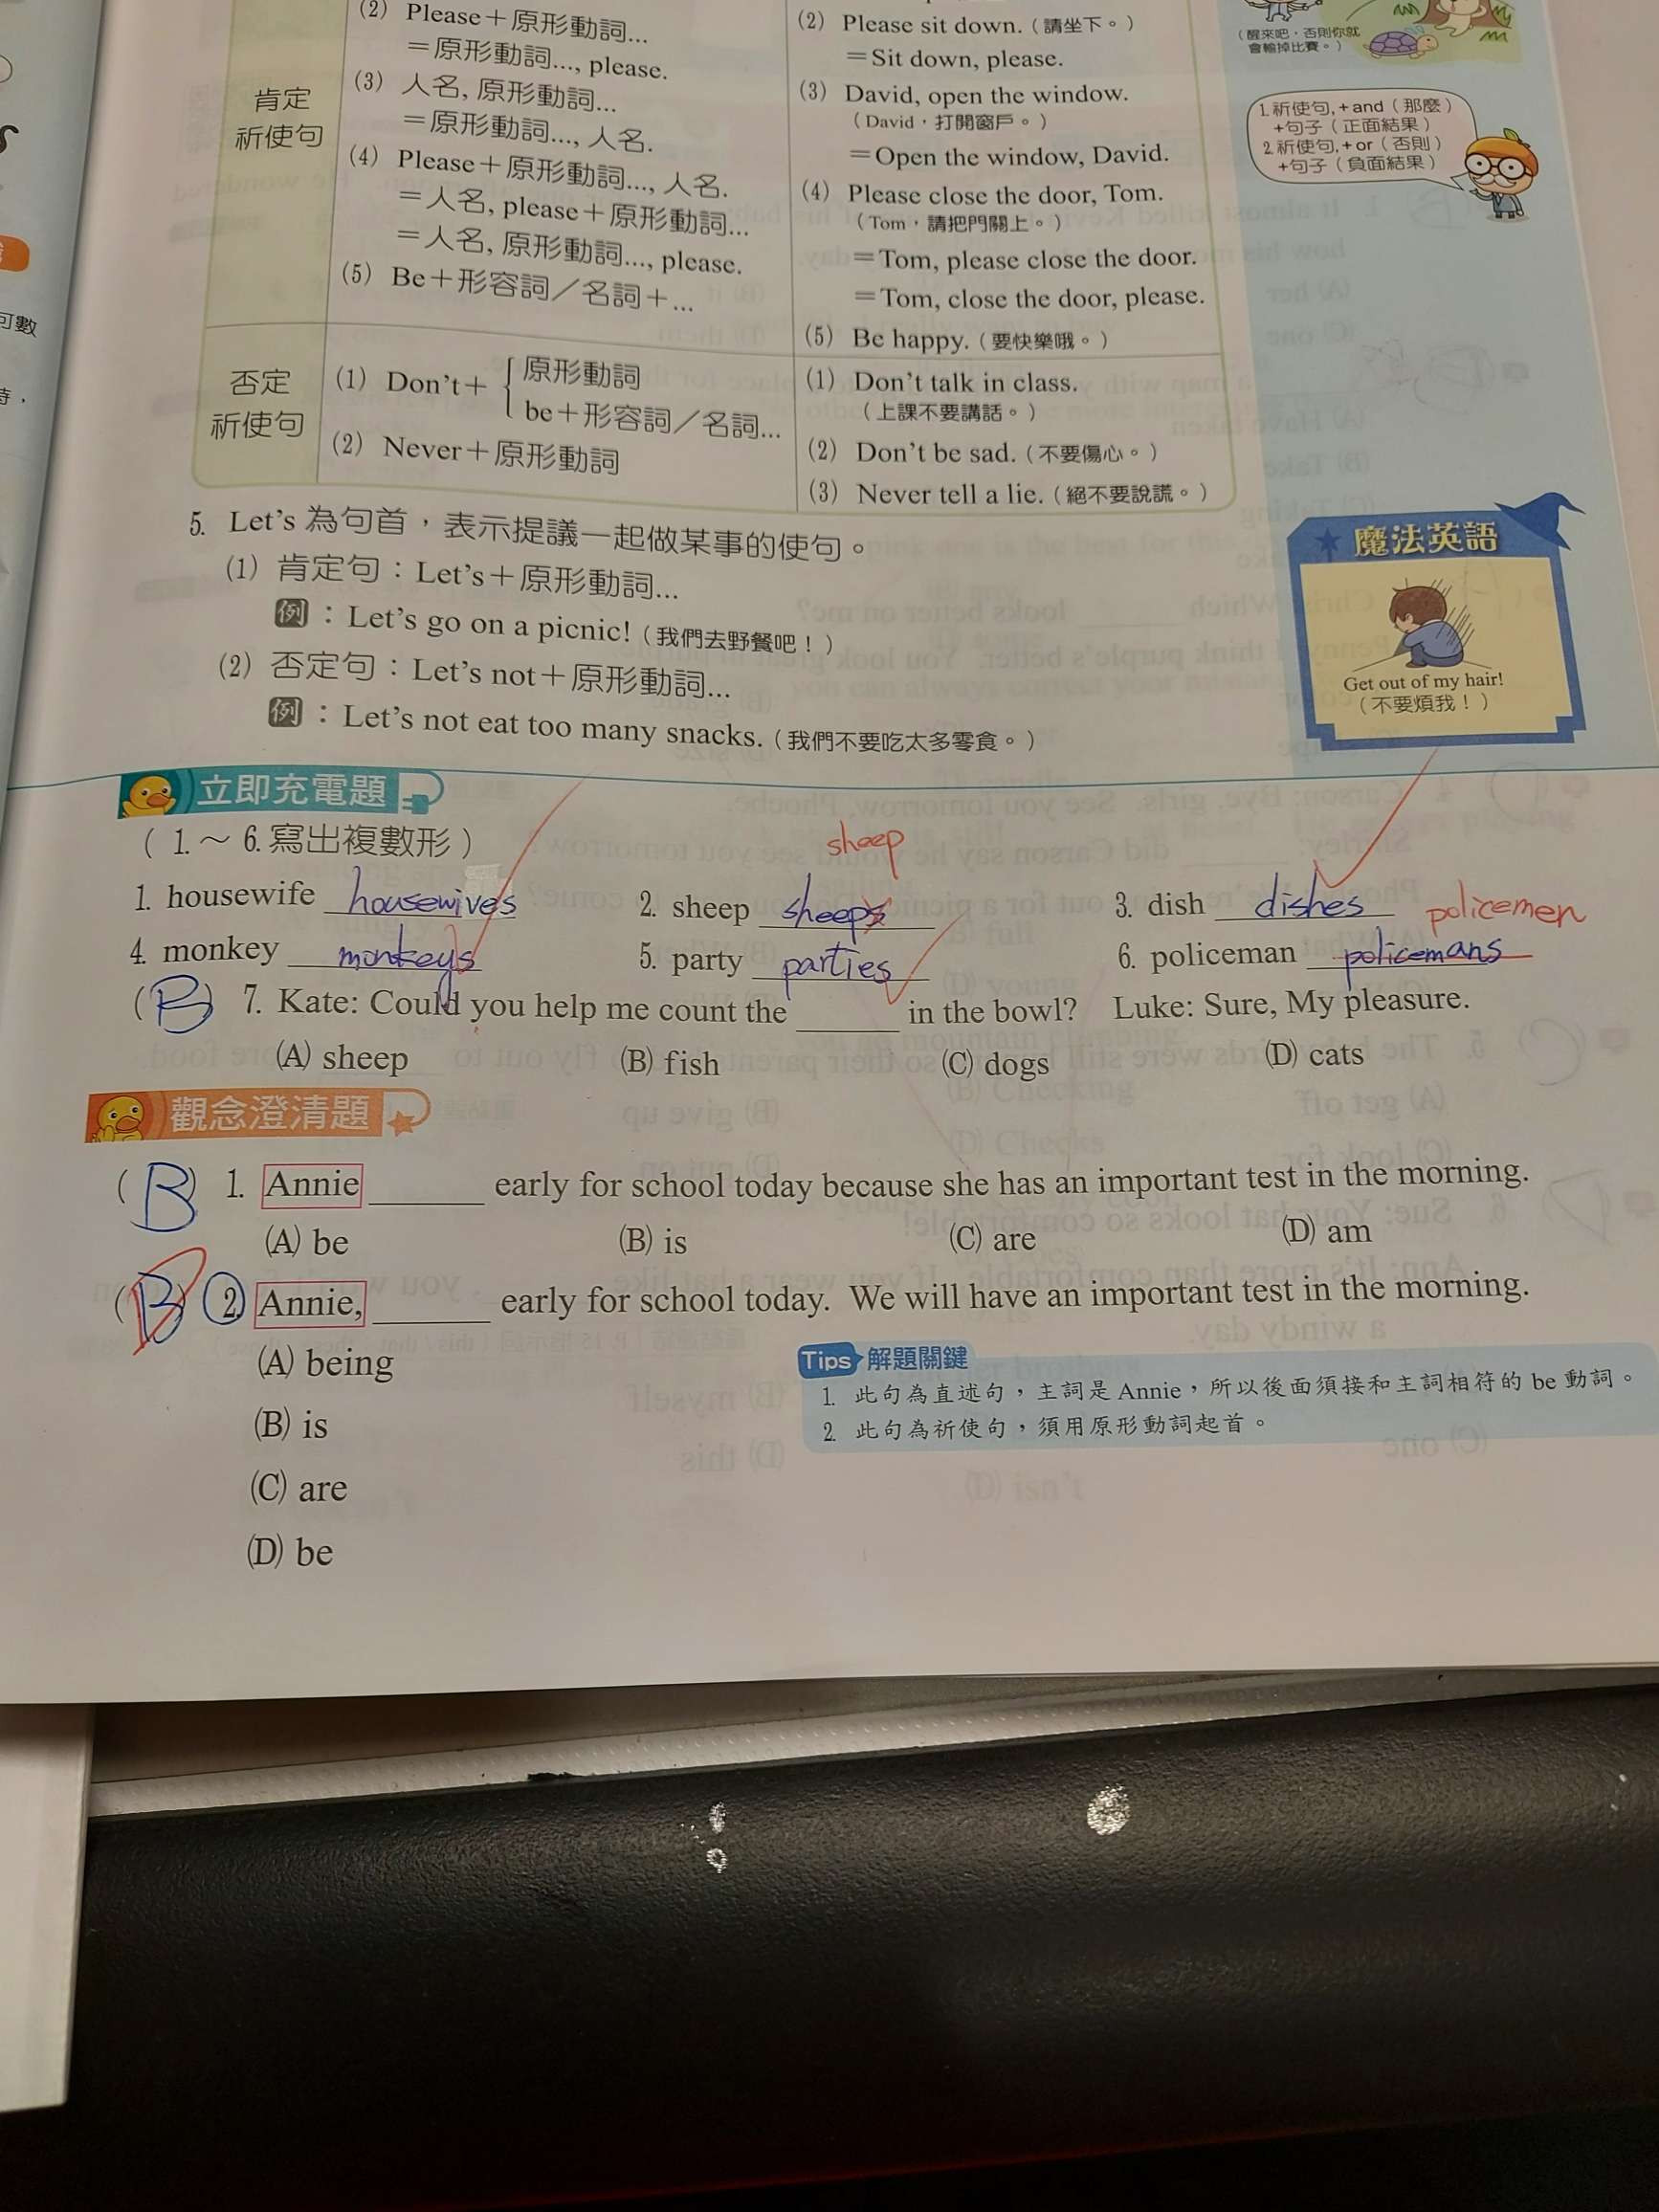 (2) Please＋原形動詞...
＝原形動詞..., please.
肯定
祈使句
(3) 人名, 原形動詞...
＝原形動詞..., 人名.
(4) Please＋原形動詞..., 人名.
＝人名, please＋原形動詞...
＝人名, 原形動詞..., please.
(5) Be＋形容詞／名詞＋...
(2) Please sit down.（請坐下。）
＝Sit down, please.
(3) David, open the window.
（David，打開窗戶。）
＝Open the window, David.
(4) Please close the door, Tom.
（Tom，請把門關上。）
＝Tom, please close the door.
＝Tom, close the door, please.
(5) Be happy.（要快樂哦。）
（醒來吧，否則你就
會輸掉比賽。）
1. 祈使句,＋and（那麼）
＋句子（正面結果）
2. 祈使句,＋or（否則）
＋句子（負面結果）
可數
否定
祈使句
(1) Don't＋
原形動詞
be＋形容詞／名詞...
(2) Never＋原形動詞
(1) Don't talk in class.
（上課不要講話。）
(2) Don't be sad.（不要傷心。）
(3) Never tell a lie.（絕不要說謊。）
5. Let's 為句首，表示提議一起做某事的使句。
(1) 肯定句：Let's＋原形動詞...
例：Let's go on a picnic!（我們去野餐吧！）
(2) 否定句：Let's not＋原形動詞...
例：Let's not eat too many snacks.（我們不要吃太多零食。）
魔法英語
Get out of my hair!
（不要煩我！）
立即充電題
（ 1.～ 6. 寫出複數形）
sheep
1. housewife housewives 2. sheep sheeps 3. dish dishes policemen
4. monkey monkeys 5. party parties 6. policeman policemans
( B ) 7. Kate: Could you help me count the ______ in the bowl? Luke: Sure, My pleasure.
(A) sheep (B) fish (C) dogs (D) cats
觀念澄清題
( B ) 1. Annie ______ early for school today because she has an important test in the morning.
(A) be (B) is (C) are (D) am
( B ) 2. Annie, ______ early for school today. We will have an important test in the morning.
(A) being
(B) is
(C) are
(D) be
Tips 解題關鍵
1. 此句為直述句，主詞是 Annie，所以後面須接和主詞相符的 be 動詞。
2. 此句為祈使句，須用原形動詞起首。